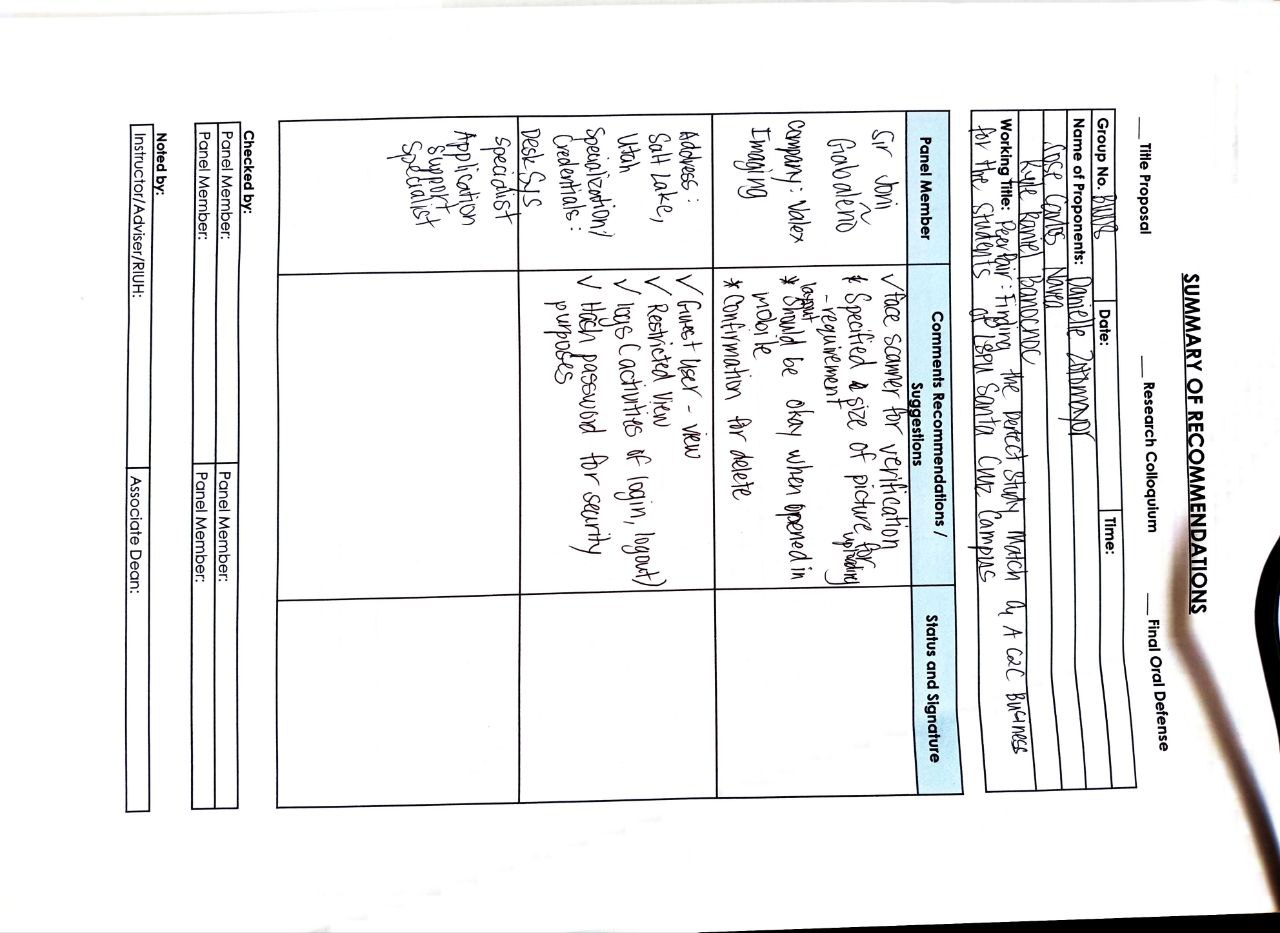 SUMMARY OF RECOMMENDATIONS
___ Title Proposal ___ Research Colloquium ___ Final Oral Defense
Group No. Date: Time:
Name of Proponents: Danielle Zotomayor
Jose Carlos Navea
Kyle Raniel
Working Title: PeerPair: Finding the Perfect Study Match A C2C Business
for the Students of LSPU Santa Cruz Campus
Panel Member
Comments Recommendations /
Suggestions
Status and Signature
Sir Joni
Gabaleño
Company: Valex
Imaging
✓ face scanner for verification
* Specified size of picture for uploading
- requirement
layout
* Should be okay when opened in
mobile
* Confirmation for delete
Address:
Salt Lake,
Utah
Specialization/
Credentials:
Desk Sys
Specialist
Application
Support
Specialist
✓ Guest User - view
✓ Restricted View
✓ logs (activities of login, logout)
✓ Hash password for security
purposes
Checked by:
Panel Member: Panel Member:
Panel Member: Panel Member:
Noted by:
Instructor/Adviser/RIUH: Associate Dean: